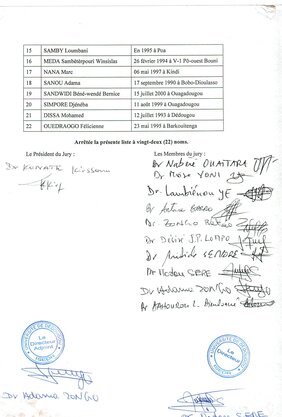 15 SAMBY Loumbani En 1995 à Poa
16 MEDA Sanbètérpouri Winsislas 26 février 1994 à V-1 Pô-ouest Bouni
17 NANA Marc 06 mai 1997 à Kindi
18 SANOU Adama 17 septembre 1990 à Bobo-Dioulasso
19 SANDWIDI Béné-wendé Bernice 15 juillet 2000 à Ouagadougou
20 SIMPORE Djénéba 11 août 1999 à Ouagadougou
21 DISSA Mohamed 12 juillet 1993 à Dédougou
22 OUEDRAOGO Félicienne 23 mai 1995 à Barkouitenga
Arrêtée la présente liste à vingt-deux (22) noms.
Le Président du Jury :
Les Membres du jury :
Dr KONATE Kirssoum
Dr OUATTARA
Dr Moïse YONI
Dr Laubiénou YE
Dr
Dr ZONGO
Dr Désiré J.P. LOMPO
Dr
Dr SERE
Dr Adama ZONGO
Dr
Le Directeur Adjoint
Dr Adama ZONGO
Dr SERE